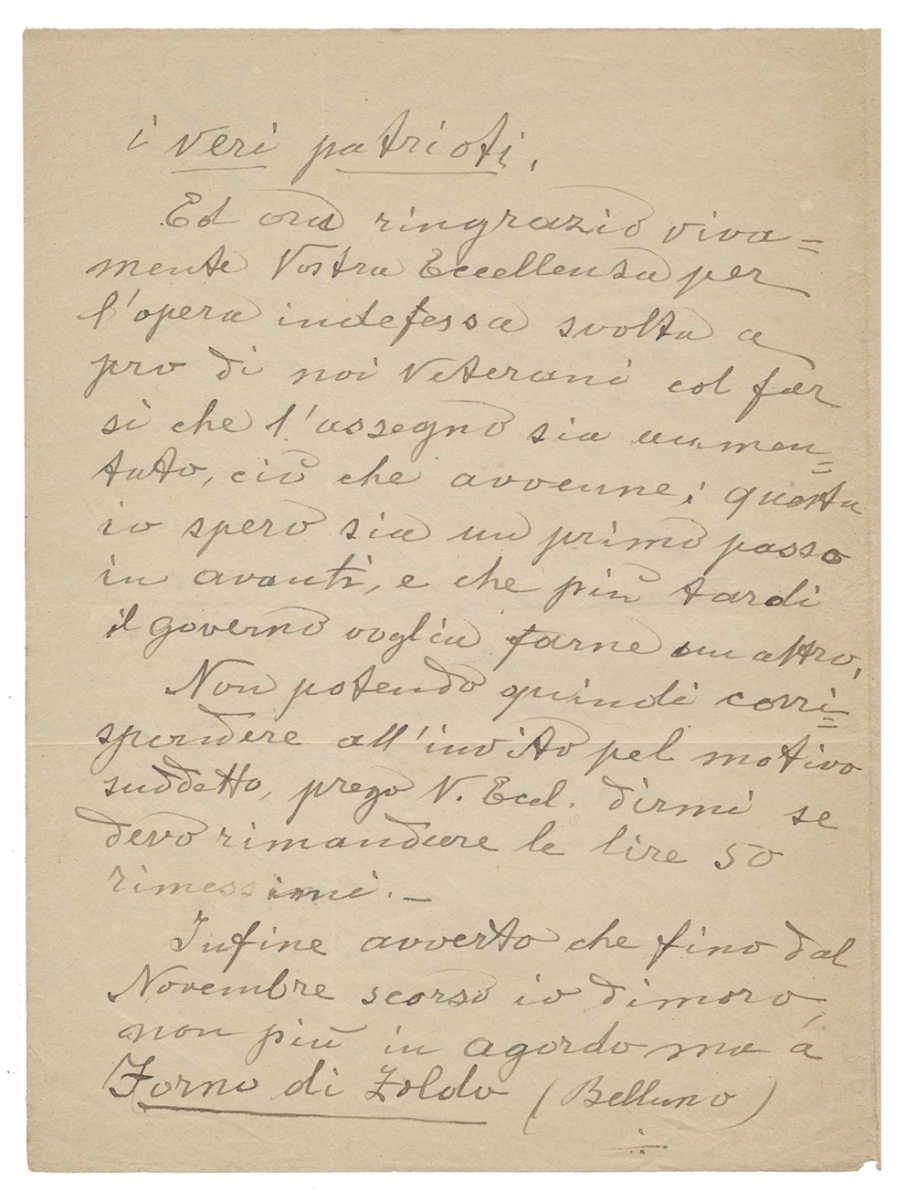 i veri patrioti.
Ed ora ringrazio viva=
mente Vostra Eccellenza per
l'opera indefessa svolta a
pro di noi Veterani col far
sì che l'assegno sia aumen=
tato, ciò che avvenne; questo
io spero sia un primo passo
in avanti, e che più tardi
il governo voglia farne un altro.
Non potendo quindi corri=
spondere all'invito pel motivo
suddetto, prego V. Eccl. dirmi se
devo rimandare le lire 50
rimessimi. _
Infine avverto che fino dal
Novembre scorso io dimoro,
non più in Agordo ma a
Forno di Zoldo (Belluno)